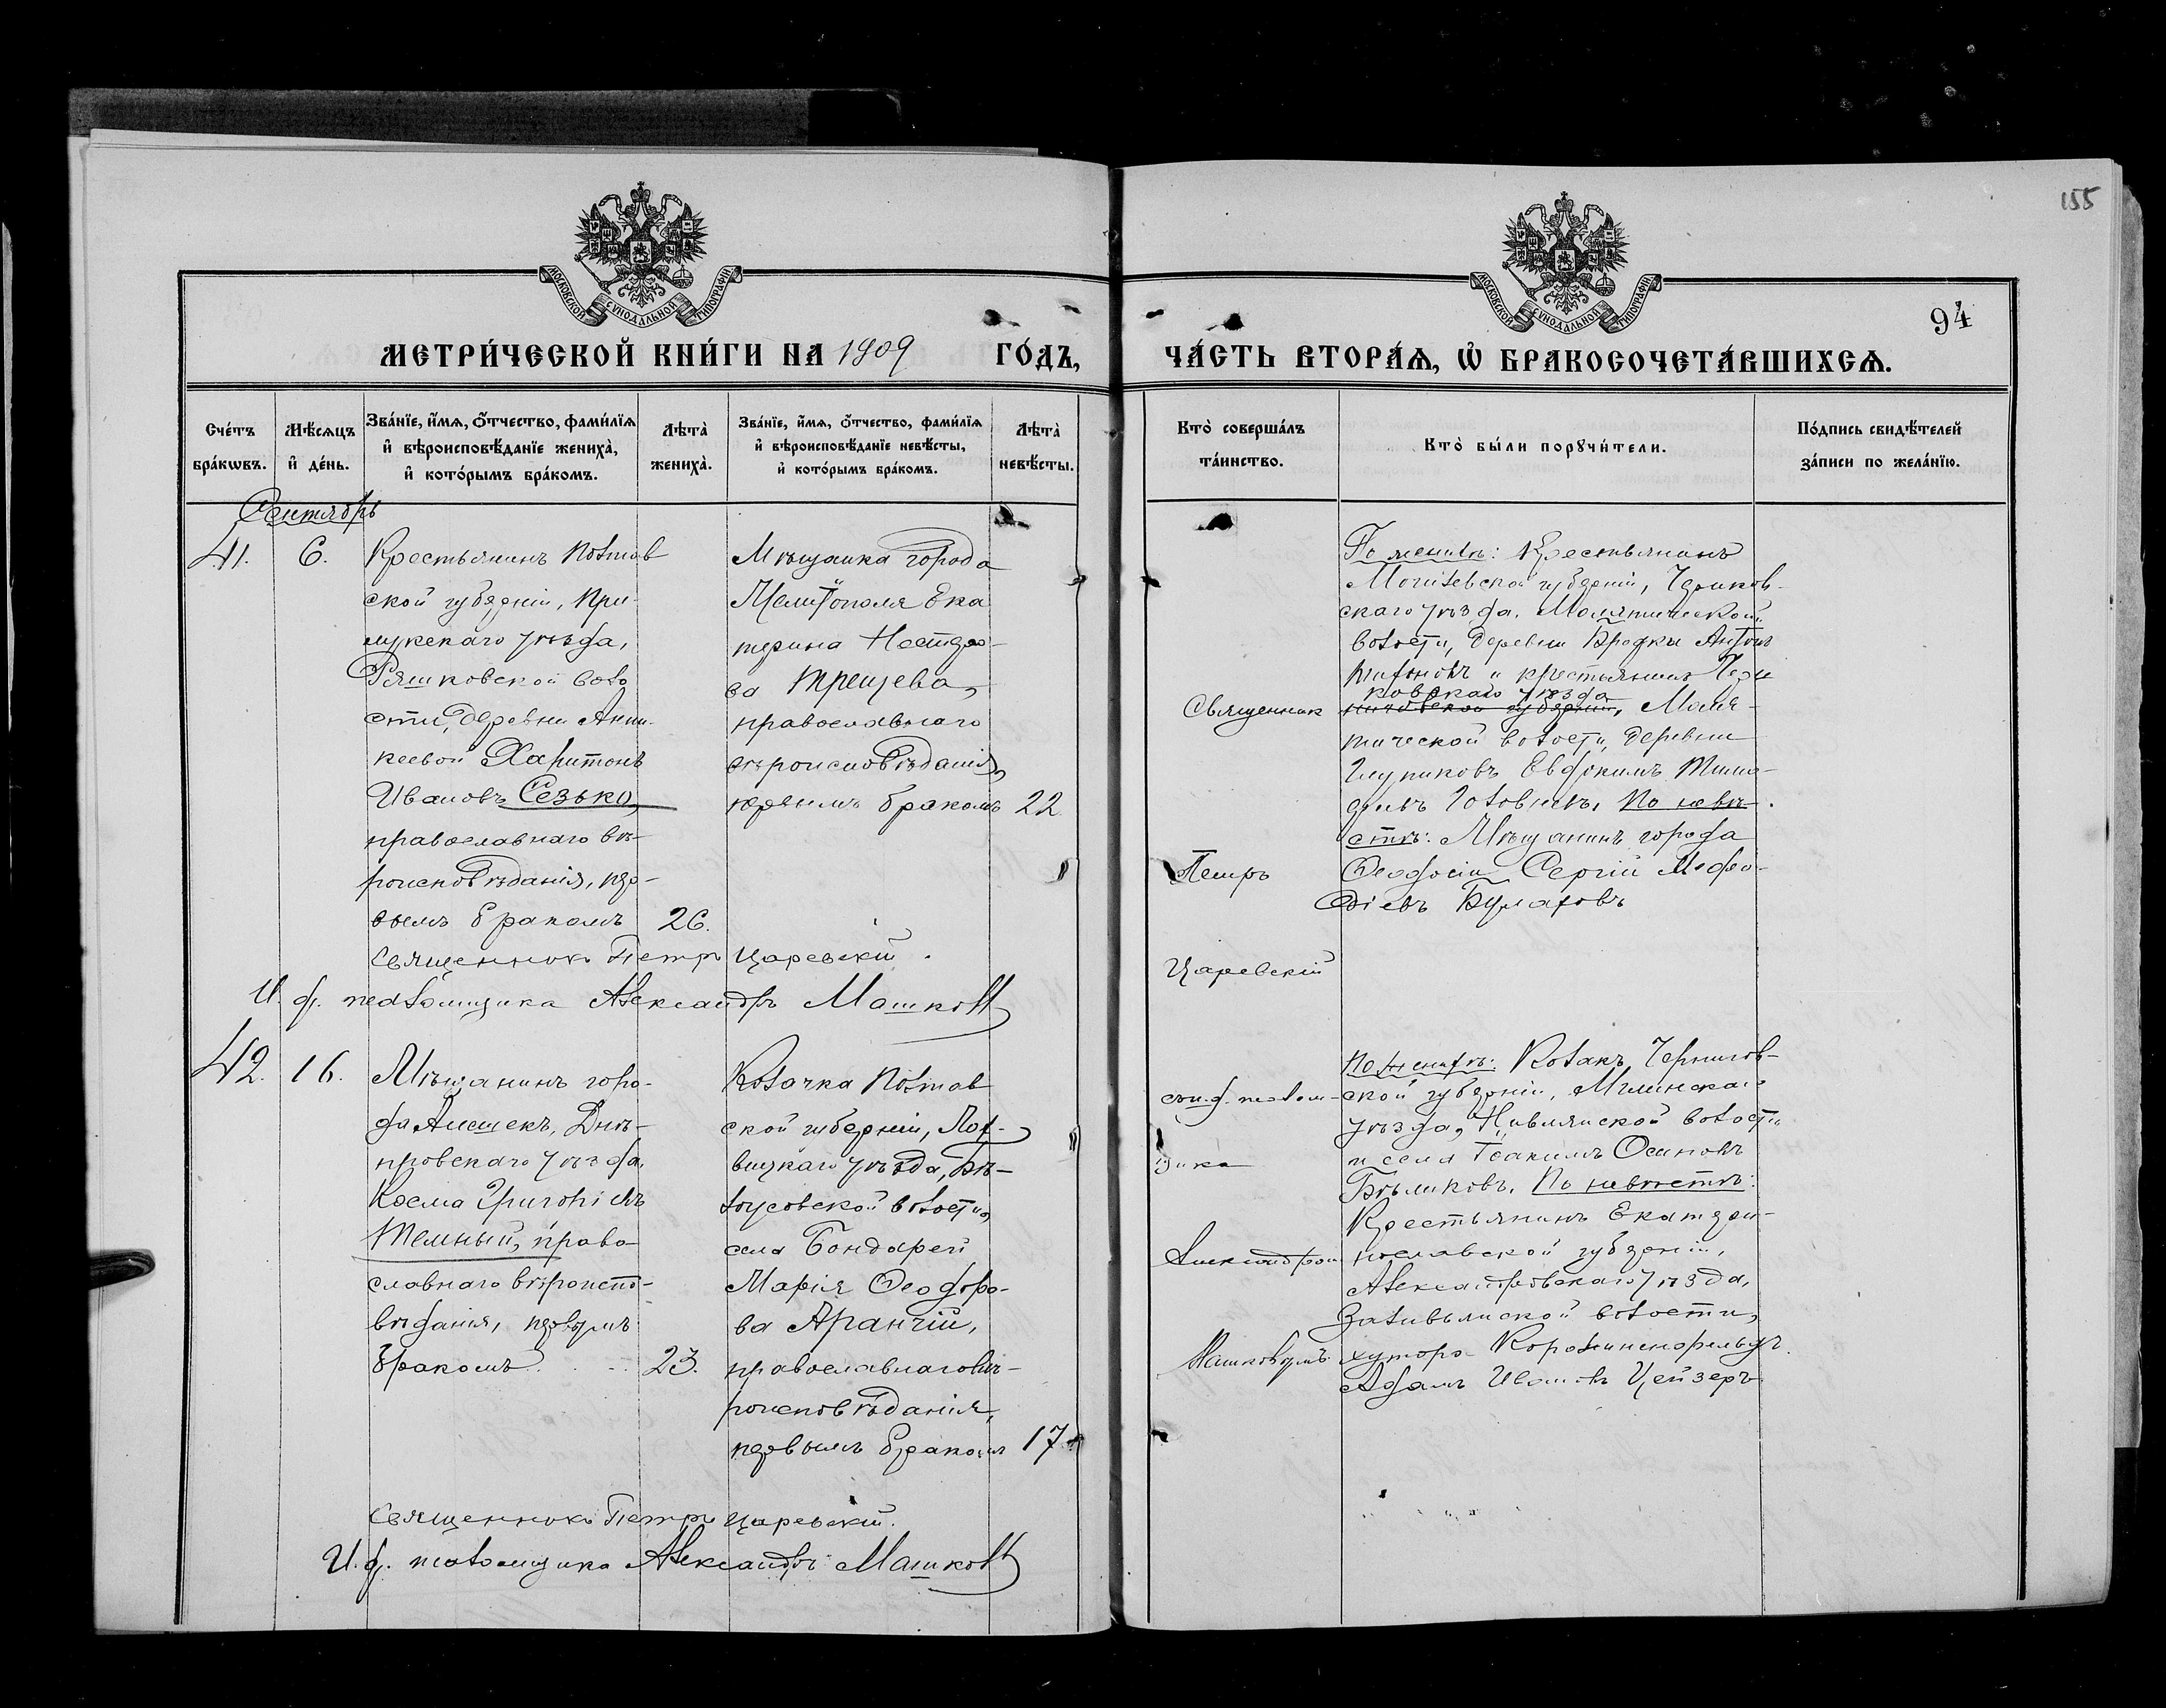 155
94
МОСКОВСКОЙ СѴНОДАЛЬНОЙ ТИПОГРАФІИ
МОСКОВСКОЙ СѴНОДАЛЬНОЙ ТИПОГРАФІИ
МЕТРИ́ЧЕСКОЙ КНИ́ГИ НА 1909 ГО́ДЪ,
ЧА́СТЬ ВТОРА́Ѧ, Ѡ҆ БРАКОСОЧЕТА́ВШИХСѦ.
Сче́тъ
бра́кѡвъ.
Мѣ́сѧцъ
и҆ де́нь.
Зва́нїе, и҆́мѧ, ѻ҆́тчество, фами́лїѧ
и҆ вѣроисповѣ́данїе жениха̀,
и҆ кото́рымъ бра́комъ.
Лѣта̀
жениха̀.
Зва́нїе, и҆́мѧ, ѻ҆́тчество, фами́лїѧ
и҆ вѣроисповѣ́данїе невѣ́сты,
и҆ кото́рымъ бра́комъ.
Лѣта̀
невѣ́сты.
Кто̀ соверша́лъ
та́инство.
Кто̀ бы́ли порꙋчи́тели.
По́дпись свидѣ́телей
за́писи по жела́нїю.
Сентябрь
41.
6.
Крестьянинъ Полтав
ской губерніи, При-
лукскаго уѣзда,
Ряшковской воло
сти, деревни Ани-
кеевой Харитонъ
Ивановъ Сезько,
православнаго вѣ-
роисповѣданія, пер-
вымъ бракомъ
26.
Мѣщанка города
Мелитополя Ека
терина Нестеро-
ва Трещева,
православнаго
вѣроисповѣданія,
первымъ бракомъ
22.
Священникъ
Петръ
Царевскій
По женихѣ: Крестьянинъ
Могилевской губерніи, Чериков-
скаго уѣзда, Молятической
волости, деревни Бродки Антонъ
и крестьянинъ Чери
ковскаго уѣзда
губерніи, Моля-
тической волости, деревни
Евдокимъ Тимо-
По невѣ-
стѣ: Мѣщанинъ города
Ѳеодосіи Сергій Меѳо-
діевъ Булатовъ
Священникъ Петръ Царевскій.
И. д. псаломщика Александръ Машковъ
42.
16.
Мѣщанинъ горо-
да Алешекъ, Днѣ-
провскаго уѣзда,
Косма Григоріевъ
Темный, право-
славнаго вѣроиспо-
вѣданія, первымъ
бракомъ
23.
Козачка Полтав
ской губерніи, Лох-
вицкаго уѣзда, Бѣ-
лоусовской волости,
села Бондарей
Марія Ѳеодоро-
ва Аранчій,
православнаго вѣ-
роисповѣданія,
первымъ бракомъ
17.
съ и. д. псалом-
щика
Александромъ
Машковымъ
По женихѣ: Козакъ Чернигов-
ской губерніи, Мглинскаго
уѣзда, волости
и села Іоакимъ Осиповъ
Бѣликовъ. По невѣстѣ:
Крестьянинъ Екатери-
нославской губерніи,
Александровскаго уѣзда,
волости,
хутора
Адамъ Ивановъ Цейзеръ
Священникъ Петръ Царевскій.
И. д. псаломщика Александръ Машковъ